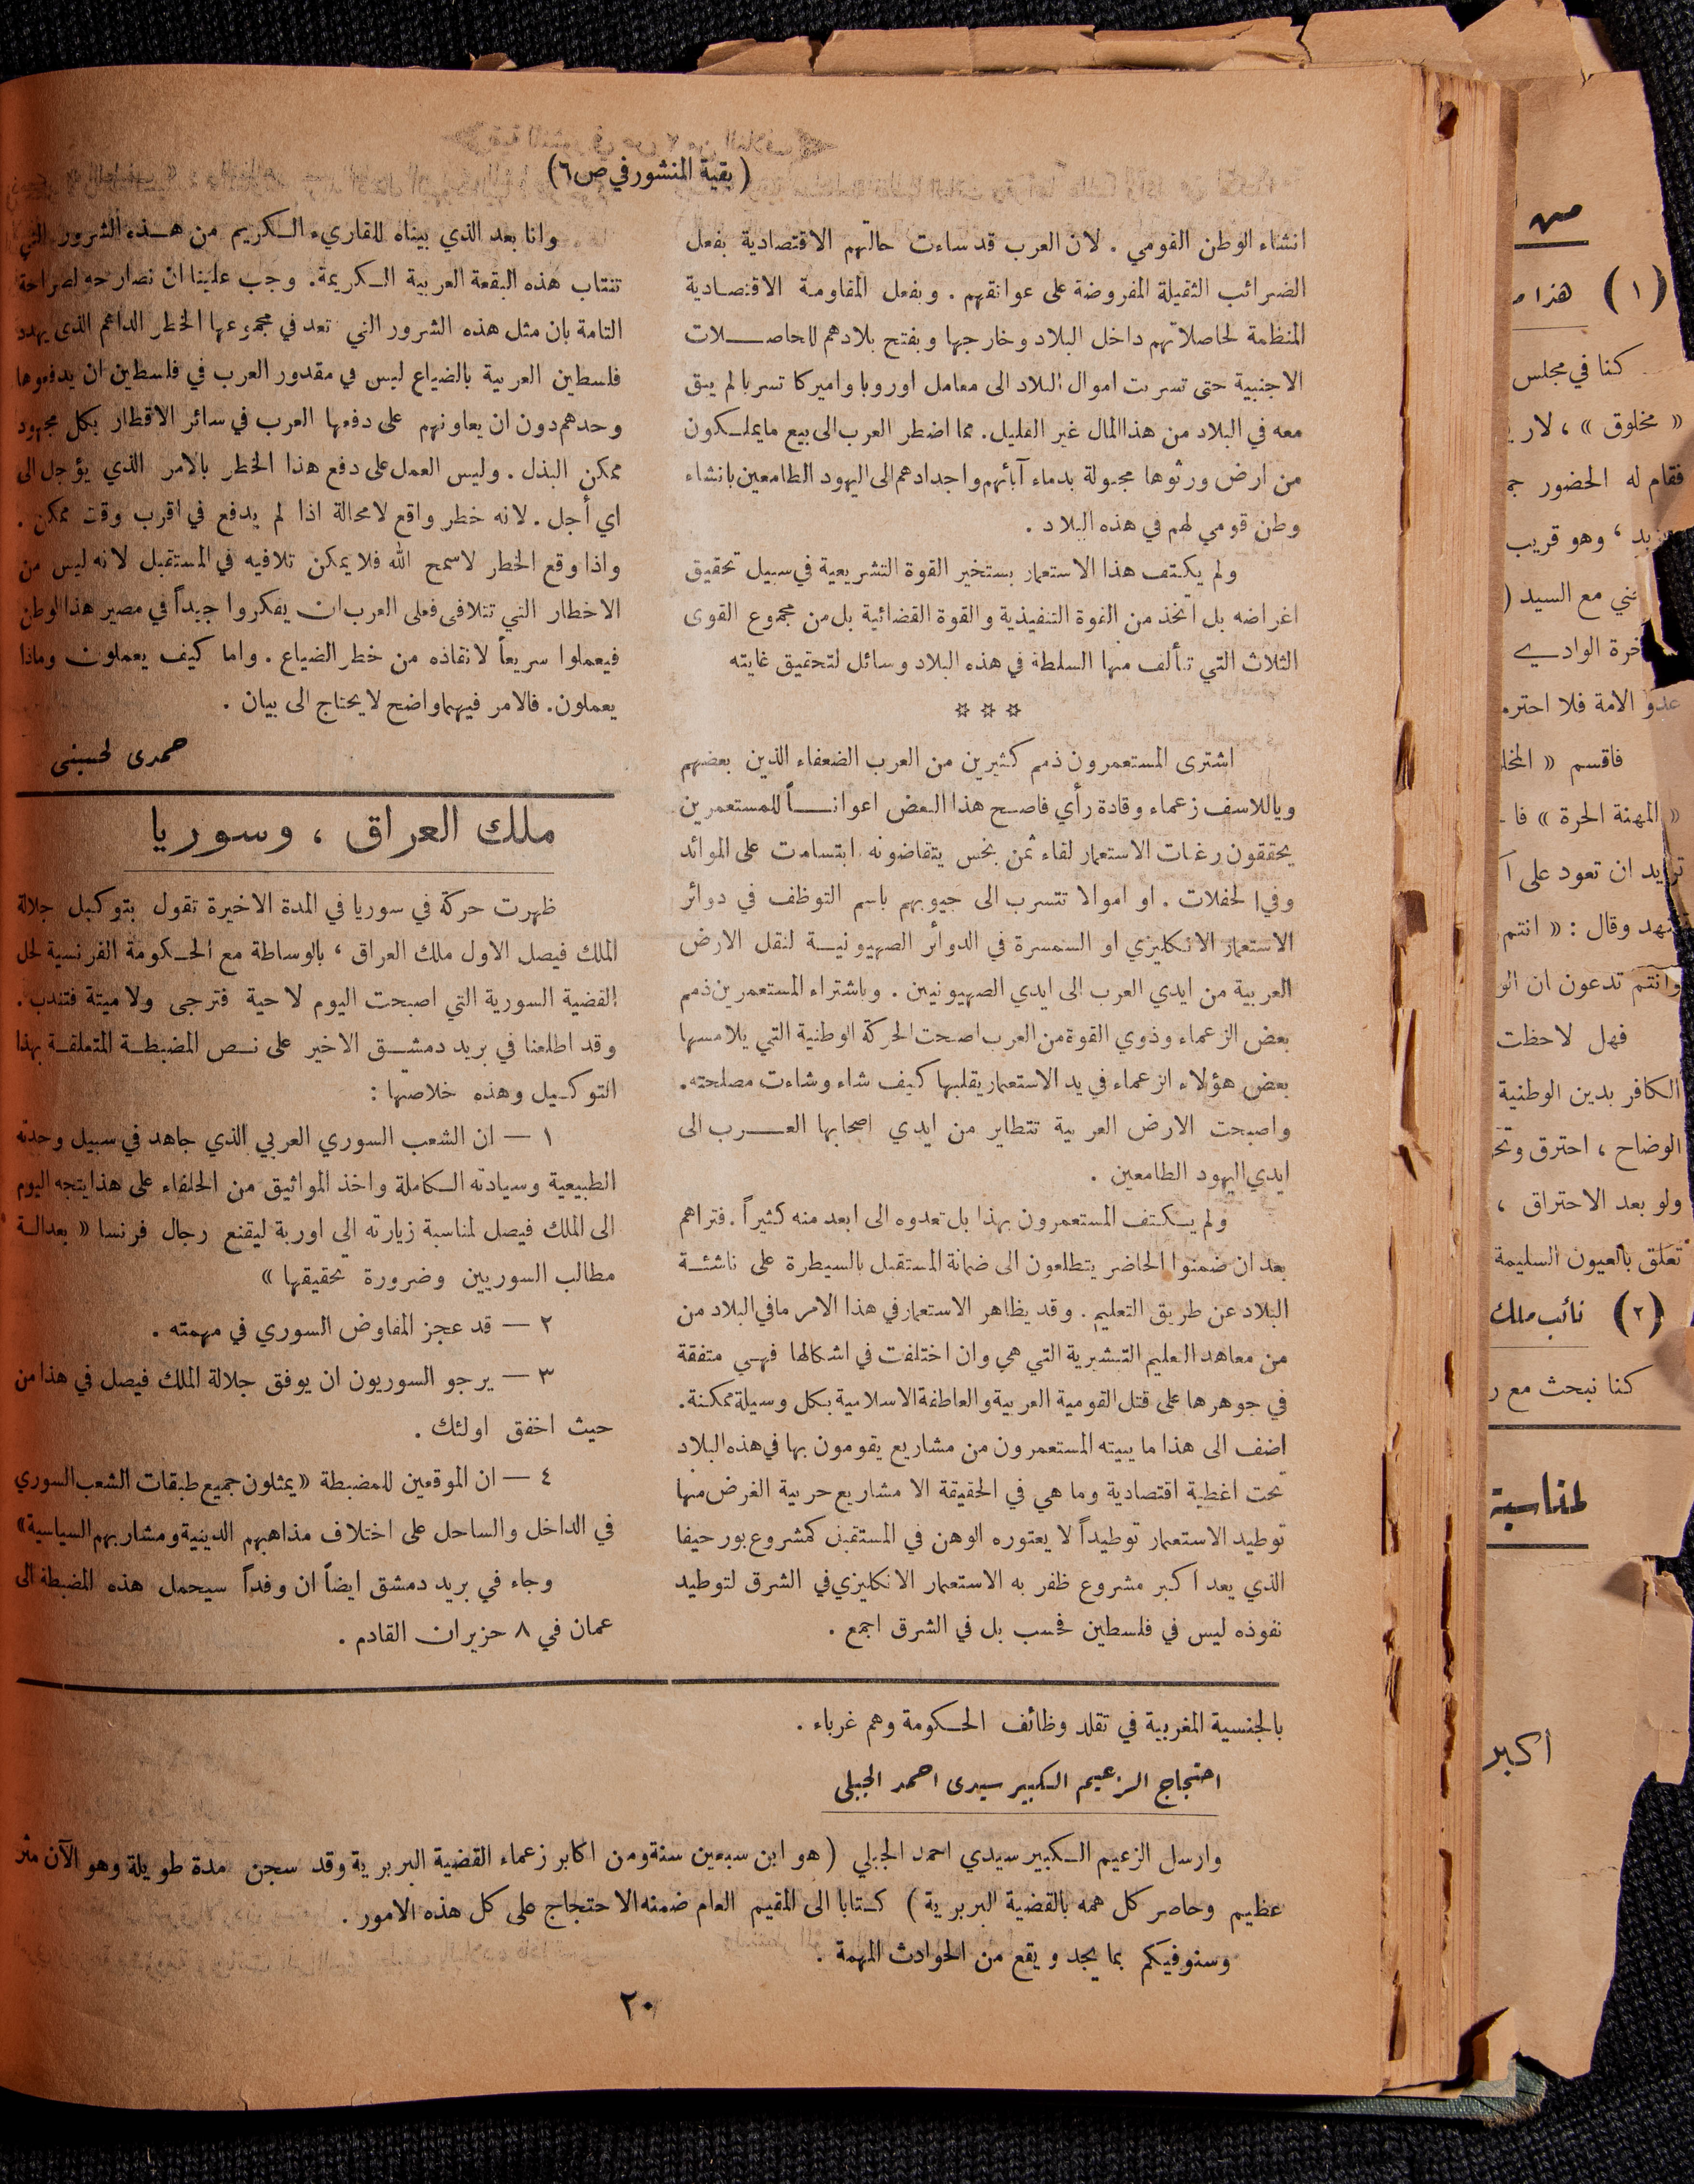 (بقية المنشور في ص ٦)
انشاء الوطن القومي . لان العرب قد ساءت حالتهم الاقتصادية بفعل
الضرائب الثقيلة المفروضة على عواتقهم . وبفعل المقاومة الاقتصادية
المنظمة لحاصلاتهم داخل البلاد وخارجها وبفتح بلادهم للحاصلات
الاجنبية حتى تسربت اموال البلاد الى معامل اوروبا واميركا تسربا لم يبق
معه في البلاد من هذا المال غير القليل. مما اضطر العرب الى بيع ما يملكون
من ارض ورثوها مجبولة بدماء آبائهم واجدادهم الى اليهود الطامعين بانشاء
وطن قومي لهم في هذه البلاد .
ولم يكتف هذا الاستعمار بستخير القوة التشريعية في سبيل تحقيق
اغراضه بل اتخذ من القوة التنفيذية والقوة القضائية بل من مجموع القوى
الثلاث التي تتألف منها السلطة في هذه البلاد وسائل لتحقيق غايته
☼ ☼ ☼
اشترى المستعمرون ذمم كثيرين من العرب الضعفاء الذين بعضهم
وياللاسف زعماء وقادة رأي فاصبح هذا البعض اعواناً للمستعمرين
يحققون رغبات الاستعمار لقاء ثمن بخس يتقاضونه ابتسامات على الموائد
وفي الحفلات . او اموالا تتسرب الى جيوبهم باسم التوظف في دوائر
الاستعمار الانكليزي او السمسرة في الدوائر الصهيونية لنقل الارض
العربية من ايدي العرب الى ايدي الصهيونيين . وباشتراء المستعمرين ذمم
بعض الزعماء وذوي القوة من العرب اصبحت الحركة الوطنية التي يلامسها
بعض هؤلاء الزعماء في يد الاستعمار يقلبها كيف شاء وشاءت مصلحته.
واصبحت الارض العربية تتطاير من ايدي اصحابها العرب الى
ايدي اليهود الطامعين .
ولم يكتف المستعمرون بهذا بل تعدوه الى ابعد منه كثيراً . فتراهم
بعد ان ضمنوا الحاضر يتطلعون الى ضمانة المستقبل بالسيطرة على ناشئة
البلاد عن طريق التعليم . وقد يظاهر الاستعمار في هذا الامر ما في البلاد من
من معاهد العليم التبشيرية التي هي وان اختلفت في اشكالها فهي متفقة
في جوهرها على قتل القومية العربية والعاطفة الاسلامية بكل وسيلة ممكنة.
اضف الى هذا ما يبيته المستعمرون من مشاريع يقومون بها في هذه البلاد
تحت اغطية اقتصادية وما هي في الحقيقة الا مشاريع حربية الغرض منها
توطيد الاستعمار توطيداً لا يعتوره الوهن في المستقبل كمشروع بور حيفا
الذي يعد اكبر مشروع ظفر به الاستعمار الانكليزي في الشرق لتوطيد
نفوذه ليس في فلسطين فحسب بل في الشرق اجمع .
وانا بعد الذي بيناه للقاريء الكريم من هذه الشرور التي
تنتاب هذه البقعة العربية الكريمة. وجب علينا ان نصارحه الصراحة
التامة بان مثل هذه الشرور التي تعد في مجموعها الخطر الداهم الذي يهدد
فلسطين العربية بالضياع ليس في مقدور العرب في فلسطين ان يدفعوها
وحدهم دون ان يعاونهم على دفعها العرب في سائر الاقطار بكل مجهود
ممكن البذل . وليس العمل على دفع هذا الخطر بالامر الذي يؤجل الى
اي أجل . لانه خطر واقع لا محالة اذا لم يدفع في اقرب وقت ممكن .
واذا وقع الخطر لا سمح الله فلا يمكن تلافيه في المستقبل لانه ليس من
الاخطار التي تتلافى فعلى العرب ان يفكروا جيداً في مصير هذا الوطن
فيعملوا سريعاً لانقاذه من خطر الضياع . واما كيف يعملون وماذا
يعملون. فالامر فيهما واضح لا يحتاج الى بيان .
حمدى الحسينى
ملك العراق ، وسوريا
ظهرت حركة في سوريا في المدة الاخيرة تقول بتوكيل جلالة
الملك فيصل الاول ملك العراق ، بالوساطة مع الحكومة الفرنسية لحل
القضية السورية التي اصبحت اليوم لا حية فترجى ولا ميتة فتندب .
وقد اطلعنا في بريد دمشق الاخير على نص المضبطة المتعلقة بهذا
التوكيل وهذه خلاصتها :
١ — ان الشعب السوري العربي الذي جاهد في سبيل وحدته
الطبيعية وسيادته الكاملة واخذ المواثيق من الحلفاء على هذا يتجه اليوم
الى الملك فيصل لمناسبة زيارته الى اوربة ليقنع رجال فرنسا « بعدالة
مطالب السوريين وضرورة تحقيقها »
٢ — قد عجز المفاوض السوري في مهمته .
٣ — يرجو السوريون ان يوفق جلالة الملك فيصل في هذا من
حيث اخفق اولئك .
٤ — ان الموقعين للمضبطة « يمثلون جميع طبقات الشعب السوري
في الداخل والساحل على اختلاف مذاهبهم الدينية ومشاربهم السياسية»
وجاء في بريد دمشق ايضاً ان وفداً سيحمل هذه المضبطة الى
عمان في ٨ حزيران القادم .
بالجنسية المغربية في تقلد وظائف الحكومة وهم غرباء .
احتجاج الزعيم الكبير سيدى احمد الجبلى
وارسل الزعيم الكبير سيدي احمد الجبلي (هو ابن سبعين سنة ومن اكابر زعماء القضية البربرية وقد سجن مدة طويلة وهو الآن مثر
عظيم وحاصر كل همه بالقضية البربرية) كتابا الى المقيم العام ضمنه الاحتجاج على كل هذه الامور .
وسنوفيكم بما يجد ويقع من الحوادث المهمة .
٢٠
من
(١) هذا
كنا في مجلس
« مخلوق » ،
فقام له الحضور
، وهو قريب
مع السيد (
الوادي
عدو الامة فلا
فاقسم «
« المهنة الحرة »
تريد ان تعود على
وقال : « انتم
وانتم تدعون ان
فهل لاحظت
الكافر بدين الوطنية
الوضاح ، احترق
ولو بعد الاحتراق ،
تعلق بالعيون السليمة
(٢) نائب ملك
كنا نبحث مع
لمناسبة
اكبر